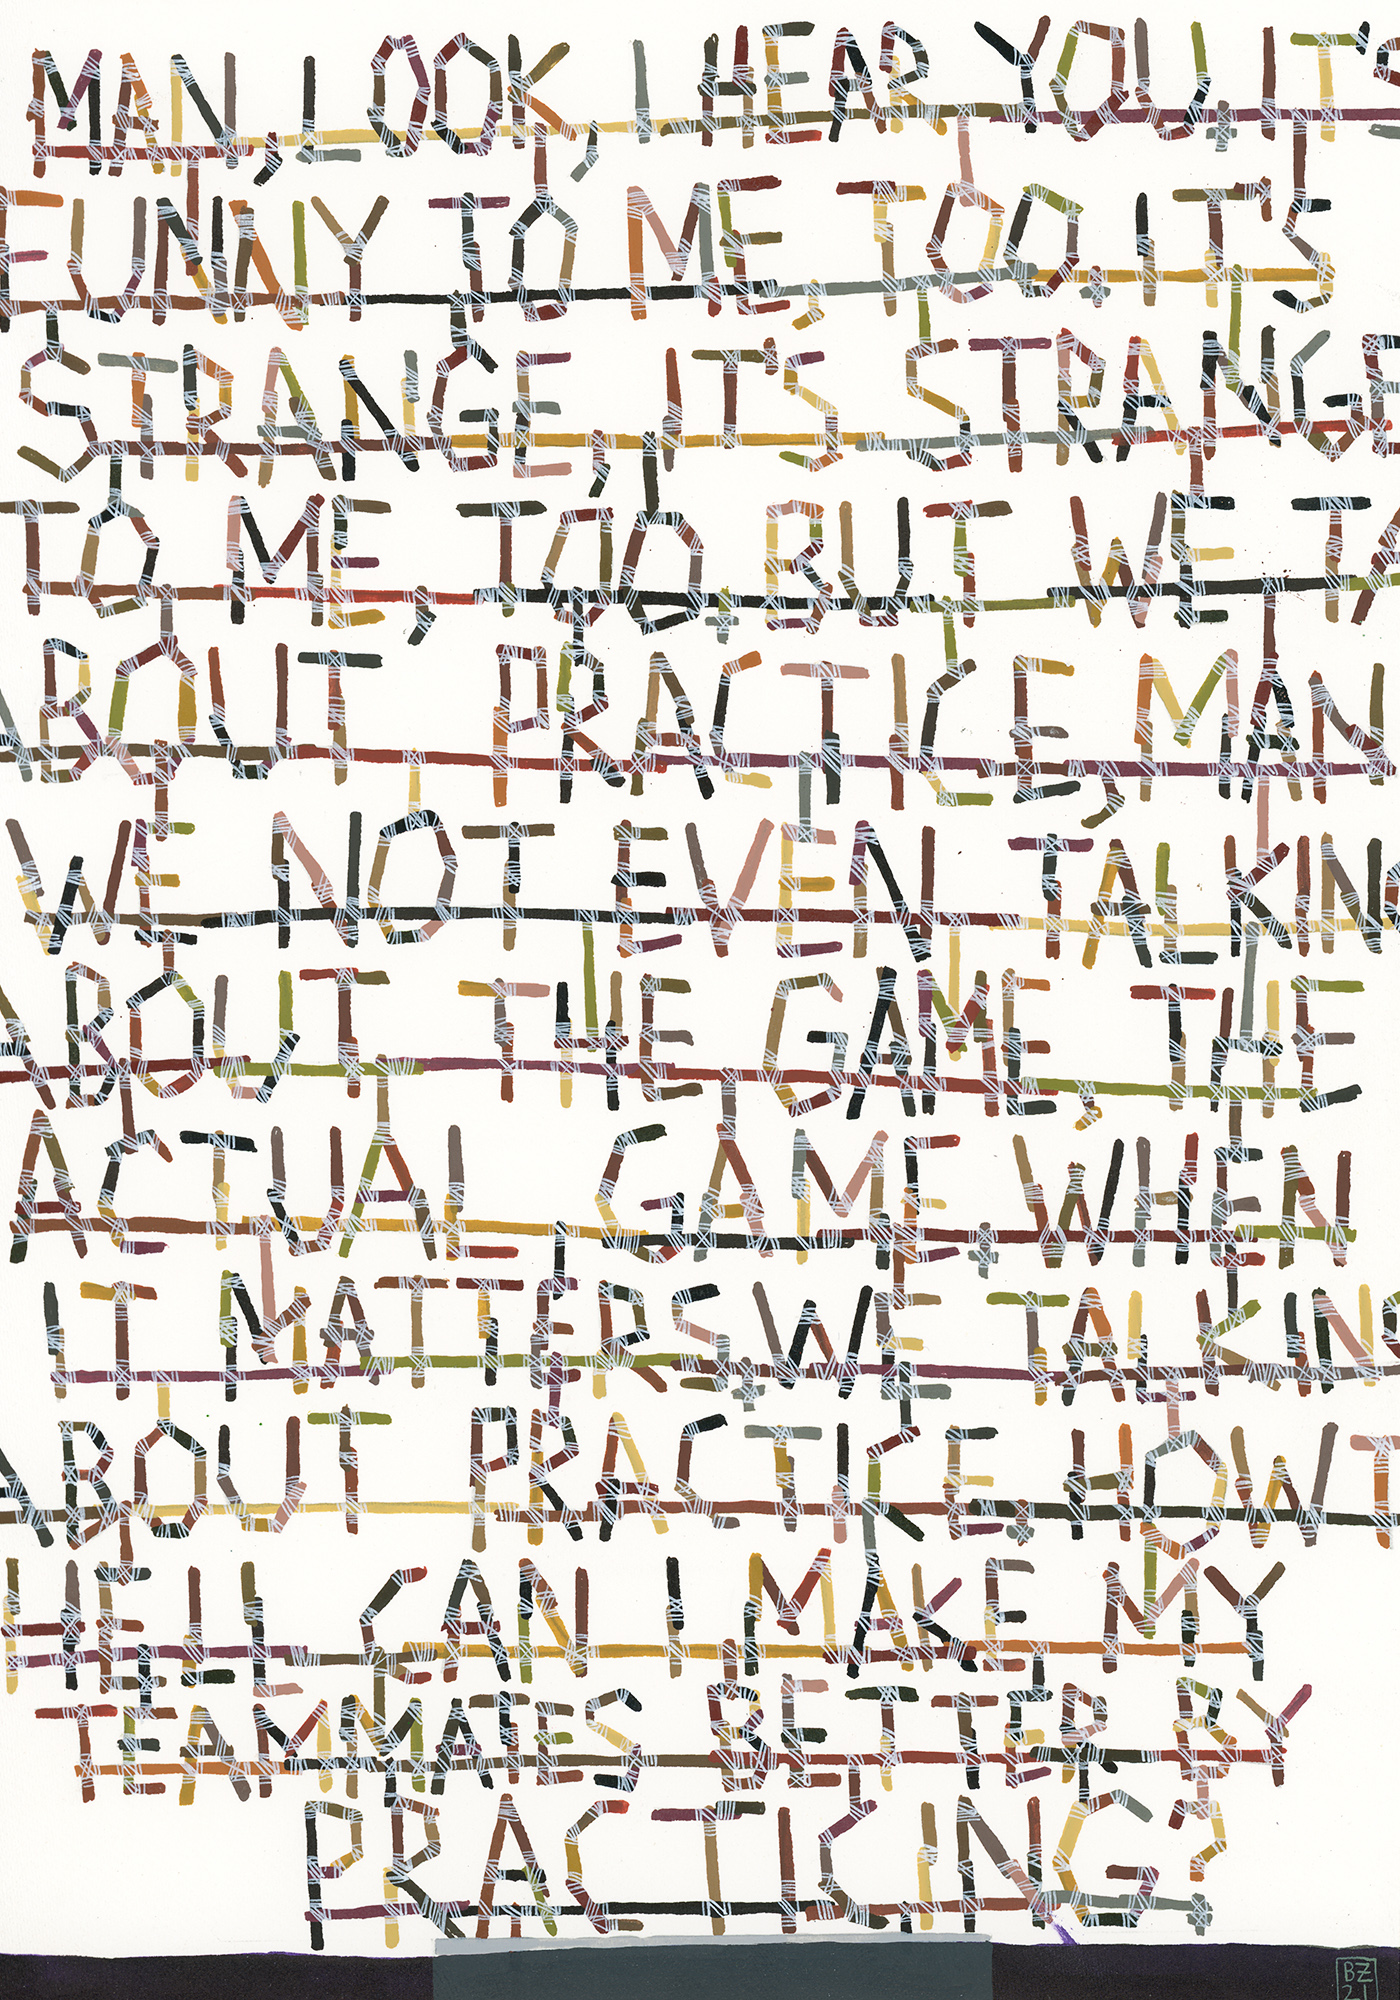 MAN, LOOK, I HEAR YOU, IT'S
FUNNY TO ME, TOO. IT'S
STRANGE, IT'S STRANGE
TO ME, TOO, BUT WE TA
ABOUT PRACTICE, MAN
WE NOT EVEN TALKING
ABOUT THE GAME, THE
ACTUAL GAME, WHEN
IT MATTERS, WE TALKING
ABOUT PRACTICE. HOW T
HELL CAN I MAKE MY
TEAMMATES BETTER BY
PRACTICING?
BZ
21